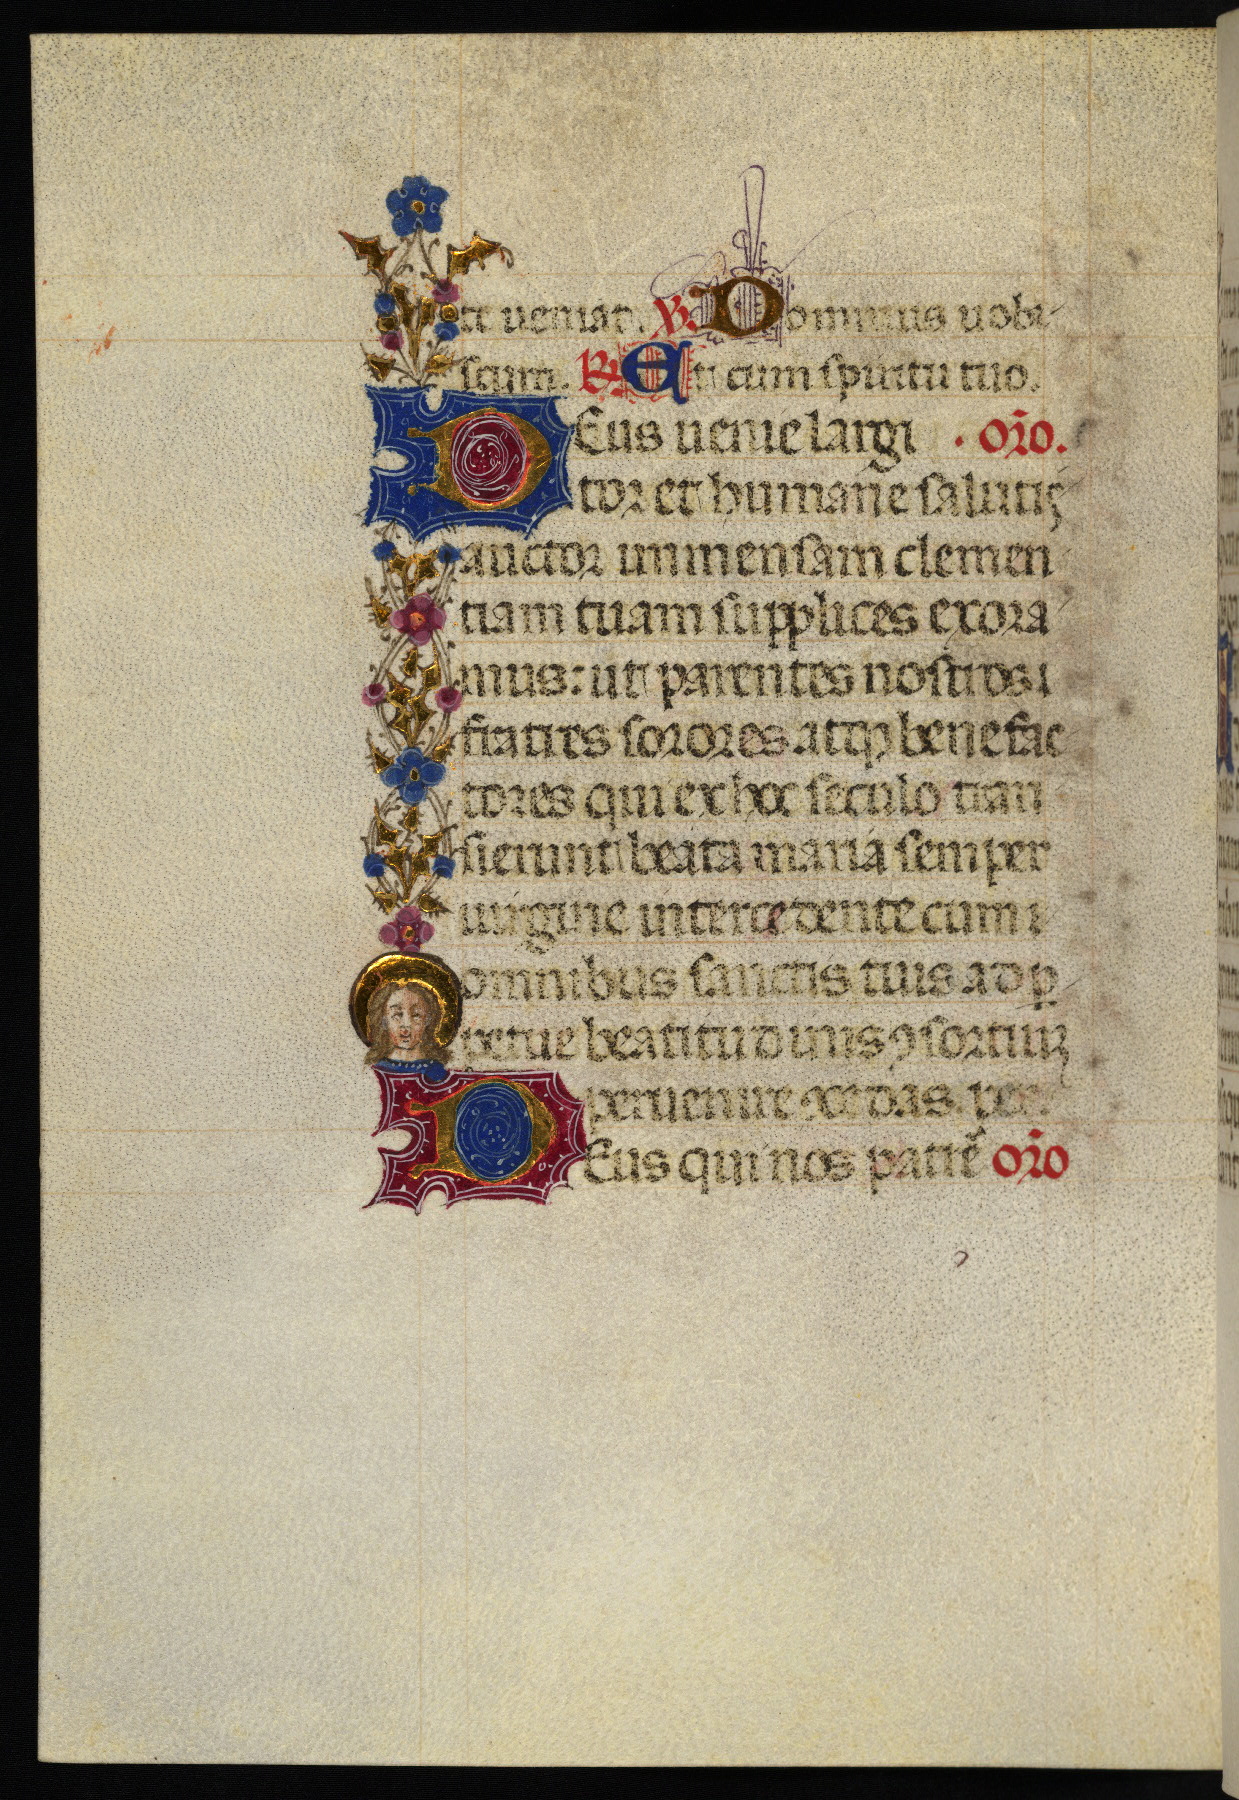 te ueniat. ℣. Dominus uobi
scum. ℟. Et cum spiritu tuo.
Deus uenie largi . oro̅.
tor et humane salutis
auctor immensam clemen
tiam tuam supplices exora
mus: ut parentes nostros
fratres sorores atqꝫ benefac
tores qui ex hoc seculo tran
sierunt beata maria semper
uirgine intercedente cum
omnibus sanctis tuis ad ꝑ
petue beatitudinis ꝯsortium
peruenire ꝯcedas. per.
Deus qui nos patrē oro̅